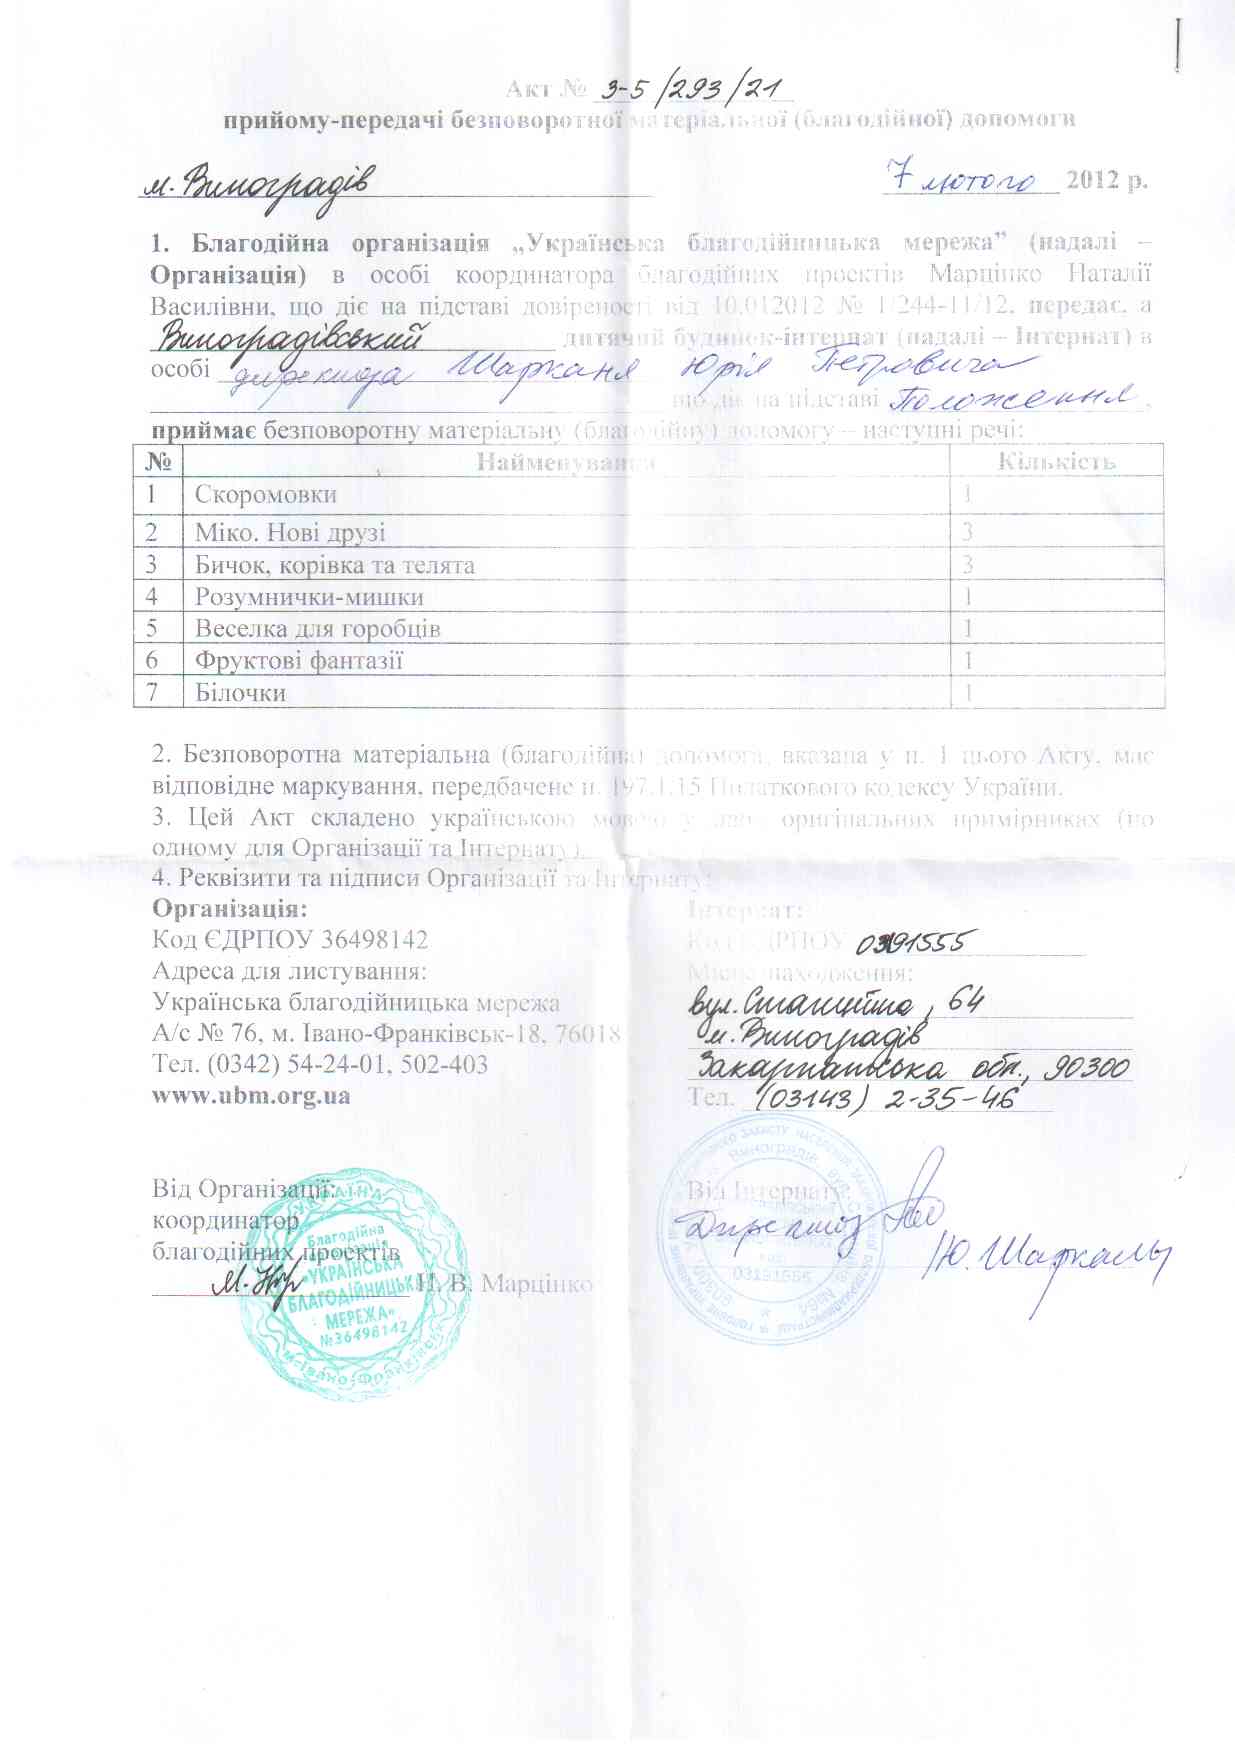 Акт № 3-5/293/21
прийому-передачі безповоротної матеріальної (благодійної) допомоги
м. Виноградів 7 лютого 2012 р.
1. Благодійна організація „Українська благодійницька мережа” (надалі –
Організація) в особі координатора благодійних проектів Марцінко Наталії
Василівни, що діє на підставі довіреності від 10.012012 № 1/244-11/12, передає, а
Виноградівський дитячий будинок-інтернат (надалі – Інтернат) в
особі директора Шаркань Юрія Петровича
що діє на підставі Положення,
приймає безповоротну матеріальну (благодійну) допомогу – наступні речі:
№ Найменування Кількість
1 Скоромовки 1
2 Міко. Нові друзі 3
3 Бичок, корівка та телята 3
4 Розумнички-мишки 1
5 Веселка для горобців 1
6 Фруктові фантазії 1
7 Білочки 1
2. Безповоротна матеріальна (благодійна) допомога, вказана у п. 1 цього Акту, має
відповідне маркування, передбачене п. 197.1.15 Податкового кодексу України.
3. Цей Акт складено українською мовою у двох оригінальних примірниках (по
одному для Організації та Інтернату).
4. Реквізити та підписи Організації та Інтернату:
Організація: Інтернат:
Код ЄДРПОУ 36498142 Код ЄДРПОУ 03191555
Адреса для листування: Місцезнаходження:
Українська благодійницька мережа вул. Станційна, 64
А/с № 76, м. Івано-Франківськ-18, 76018 м. Виноградів
Тел. (0342) 54-24-01, 502-403 Закарпатська обл., 90300
www.ubm.org.ua Тел. (03143) 2-35-46
Від Організації: Від Інтернату:
координатор Директор
благодійних проектів Ю. Шаркань
Н. В. Марцінко
УКРАЇНА
Благодійна
організація
«УКРАЇНСЬКА
БЛАГОДІЙНИЦЬКА
МЕРЕЖА»
№36498142
м. Івано-Франківськ
03191555